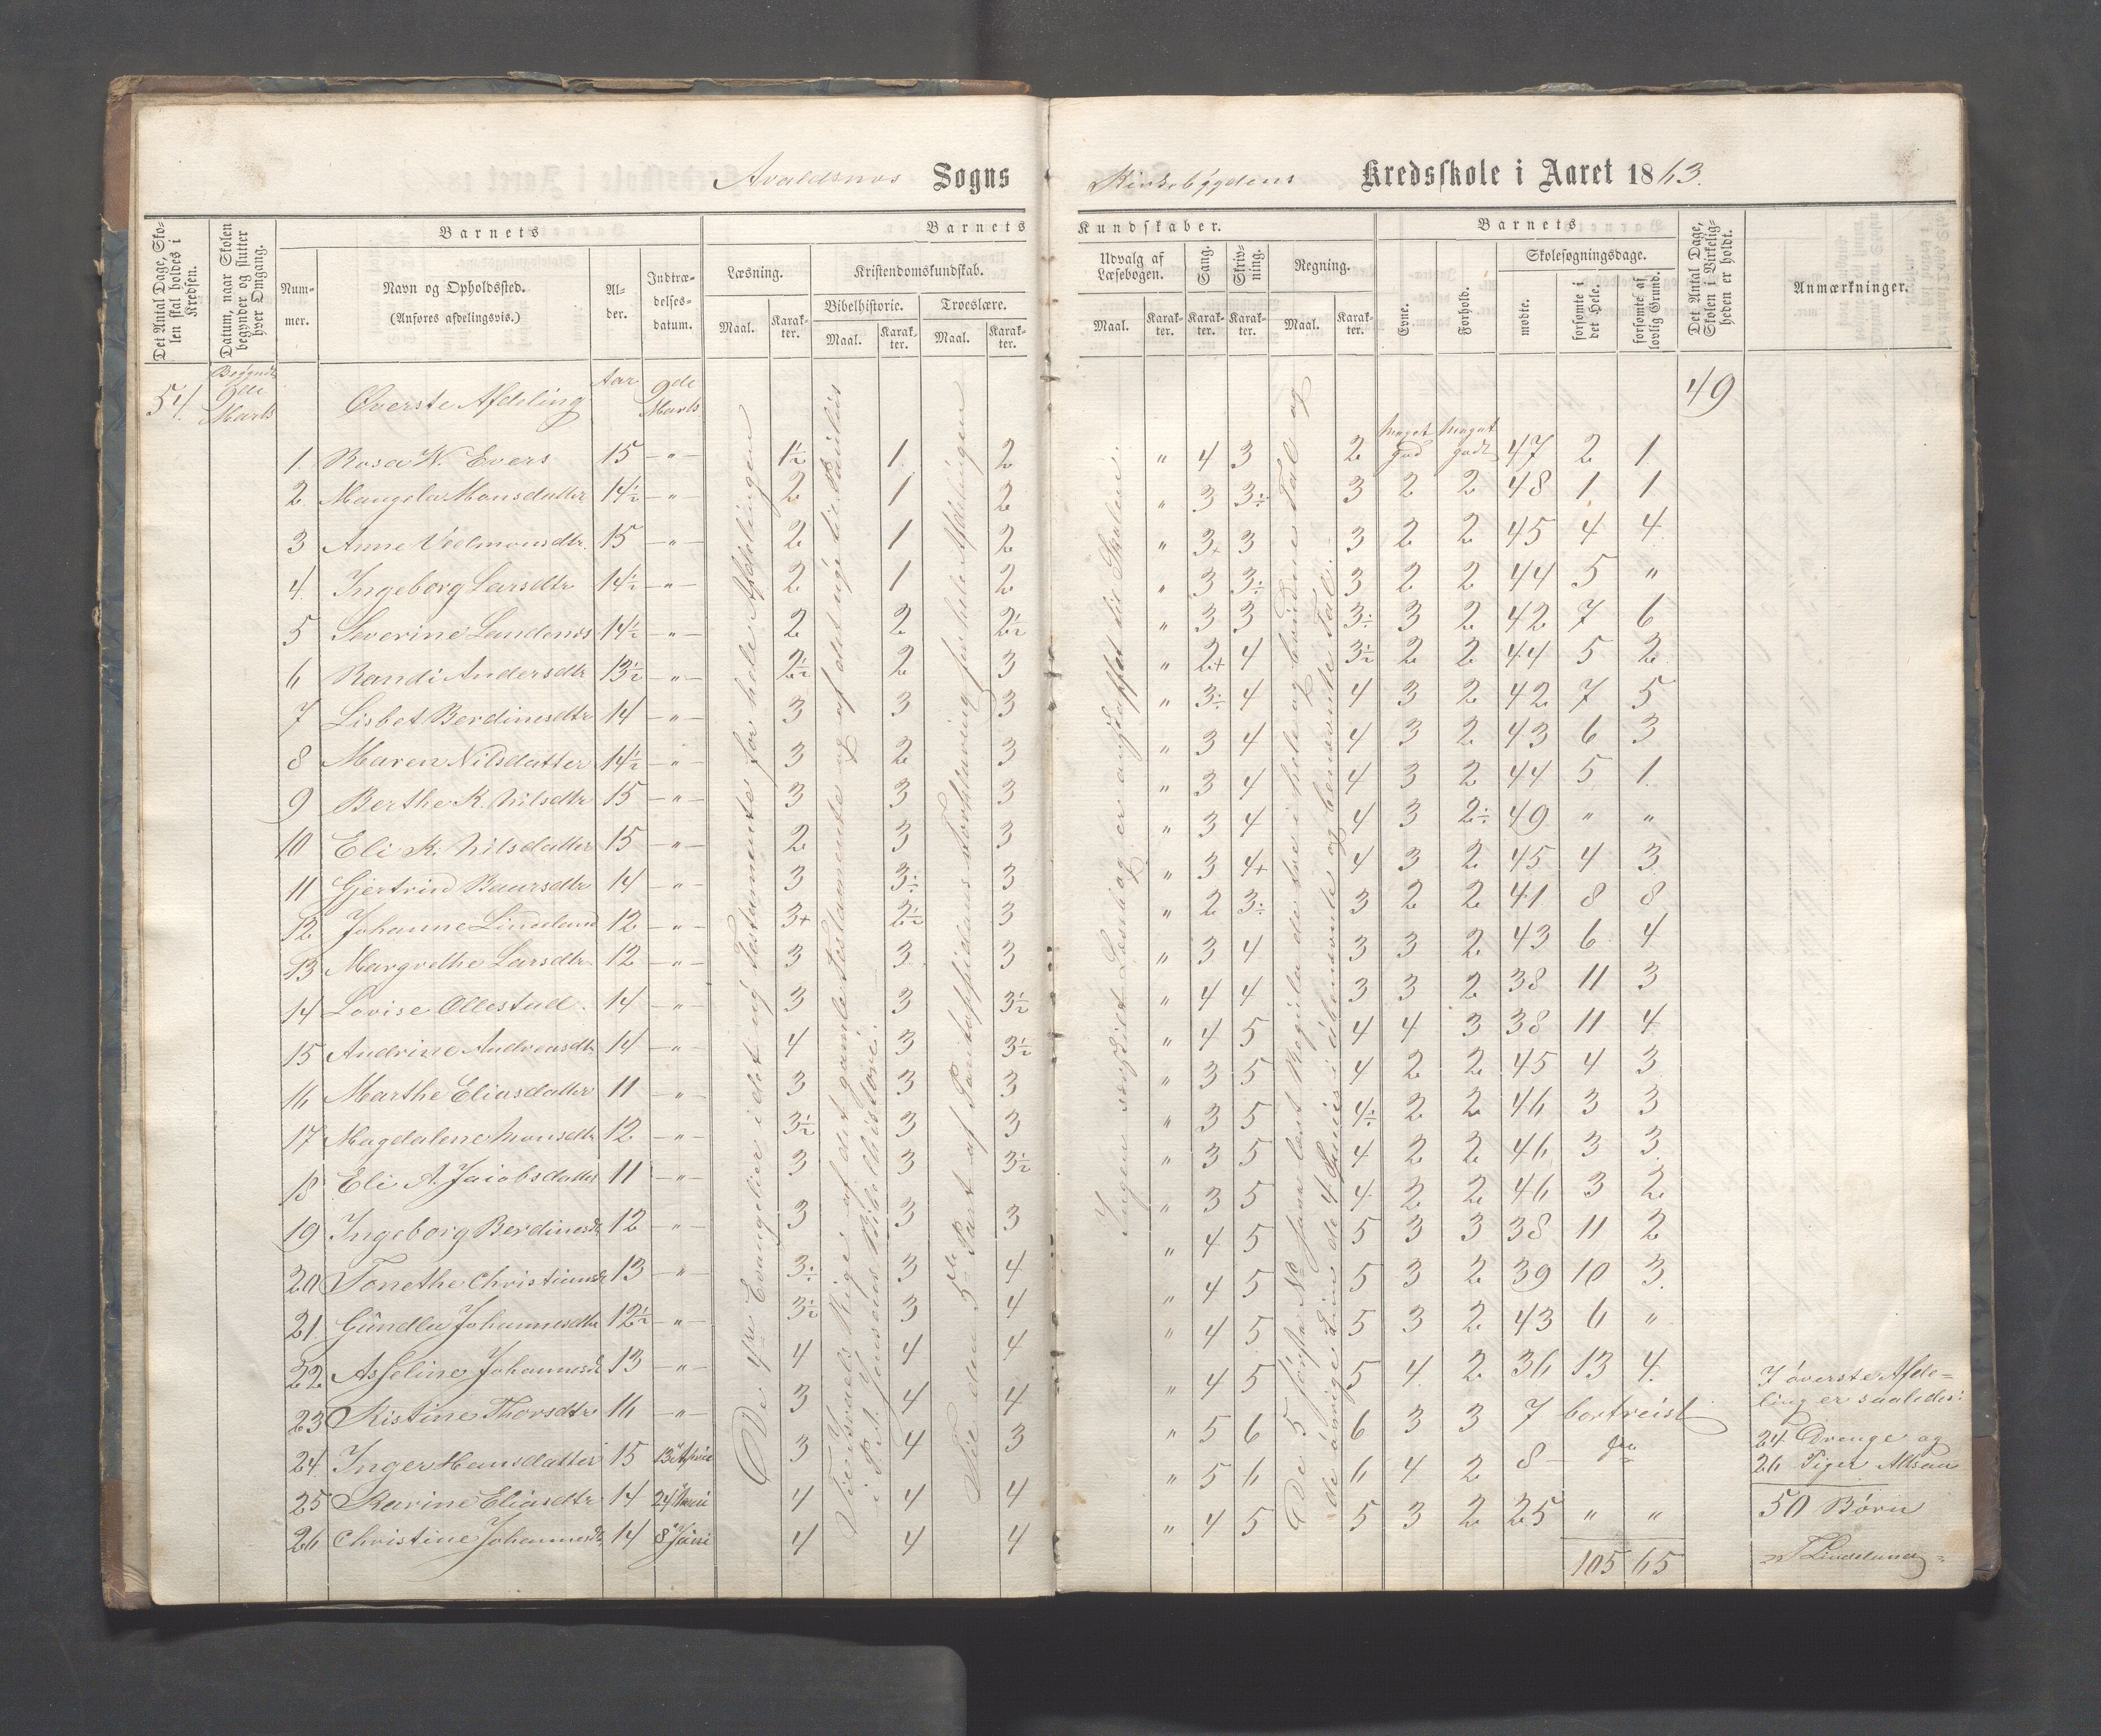 Avaldsnes Sogns
Kirkebygdens Kredsskole i Aaret 1863.
Det Antal Dage, Skolen skal holdes i Kredsen.
Datum, naar Skolen begynder og slutter hver Omgang.
Barnets
Nummer.
Navn og Opholdssted.
(Anføres afdelingsvis.)
Alder.
Indtrædelsesdatum.
Barnets
Læsning.
Maal.
Karakter.
Kristendomskundskab.
Bibelhistorie.
Maal.
Karakter.
Troeslære.
Maal.
Karakter.
Kundskaber.
Udvalg af Læsebogen.
Maal.
Karakter.
Sang.
Karakter.
Skrivning.
Karakter.
Regning.
Maal.
Karakter.
Barnets
Evne.
Forhold.
Skolesøgningsdage.
mødte.
forsømte i det Hele.
forsømte af lovlig Grund.
Det Antal Dage, Skolen i Virkeligheden er holdt.
Anmærkninger.
54 Begyndt 9de Marts Øverste Afdeling Aar 9de Marts 49
meget god meget godt
1. Rosa W. Evers 15 — " — 1½ 1 2 " 4 3 2 47 2 1
2 Maugela Monsdatter 14½ — " — 2 1 2 " 3 3÷ 3 2 2 48 1 1
3 Anne Velmonsdtr. 15 — " — 2 1 2 " 3+ 3 3 2 2 45 4 4
4 Ingeborg Larsdtr 14½ — " — 2 1 2 " 3 3÷ 3 2 2 44 5 "
5 Severine Landenes 14½ — " — 2 2 2½ " 3 3 3÷ 3 2 42 7 6
6 Randi Andersdtr 13½ — " — 2½ 2 3 " 2+ 4 3½ 2 2 44 5 2
7 Lisbet Berdinesdtr 14 — " — 3 3 3 " 3÷ 4 4 3 2 42 7 5
8 Maren Nilsdatter 14½ — " — 3 2 3 " 3 4 4 3 2 43 6 3
9 Berthe K. Nilsdtr 15 — " — 3 3 3 " 3 4 4 3 2 44 5 1
10 Eli K. Nilsdatter 15 — " — 2 3 3 " 3 4 4 3 2÷ 49 " "
11 Gjertrud Baursdtr 14 — " — 3 3÷ 3 " 3 4+ 4 3 2 45 4 3
12 Johanne Lindeland 12 — " — 3+ 2½ 3 " 2 3÷ 3 2 2 41 8 8
13 Margrethe Larsdtr. 12 — " — 3 3 3 " 3 4 3 3 2 43 6 4
14 Lovise Ollestad. 14 — " — 3 3 3½ " 4 4 3 3 2 38 11 3
15 Andrine Andreasdtr 14 — " — 4 3 3½ " 4 5 4 4 3 38 11 4
16 Marthe Eliasdatter 11 — " — 3 3 3 " 3 5 4 2 2 45 4 3
17 Magdalene Monsdtr 12 — " — 3½ 3 3 " 3 5 4÷ 2 2 46 3 3
18 Eli A. Jacobsdatter 11 — " — 3 3 3½ " 3 5 4 2 2 46 3 3
19 Ingeborg Berdinesdtr 12 — " — 3 3 3 " 3 5 4 2 2 46 3 2
20 Tonethe Christiansdtr 13 — " — 3÷ 3 4 " 4 5 5 3 3 38 11 2
21 Gundla Johannesdtr 12½ — " — 3½ 3 4 " 4 5 5 3 2 39 10 3
22 Asseline Johannesdtr 13 — " — 4 4 4 " 4 5 5 3 2 43 6 "
23 Kistine Thorsdtr 16 — " — 3 4 4 " 4 5 5 4 2 36 13 4
24 Inger Hansdatter 15 13de April 3 4 3 " 5 6 6 3 3 7 bortreist
25 Karine Eliasdtr 14 24de 4 4 4 " 5 6 6 4 2 8 — do
26 Christine Johannesdtr 14 8de Juni 4 4 4 " 4 5 5 3 2 25 " "
105 65
De 4re Evangelier i det ny Testamente for hele Afdelingen
Fra Israels Riger af det gamle Testamente og af det nye til Paulus
i P. A. Jensens Bibelhistorie.
Til den 5te Part af Pontoppidans Forklaring for hele Afdelingen
Ingen særskilt Læsebog er anskaffet til Skolen.
De 5 første No. have læst Reguladetri i hele og brudne Tal og
de øvrige Lin de 4 Species i ubenævnte og benævnte Tal.
I øverste Afdeling er saaledes:
24 Drenge og
26 Piger Altsaa
50 Børn
T. Lindeland